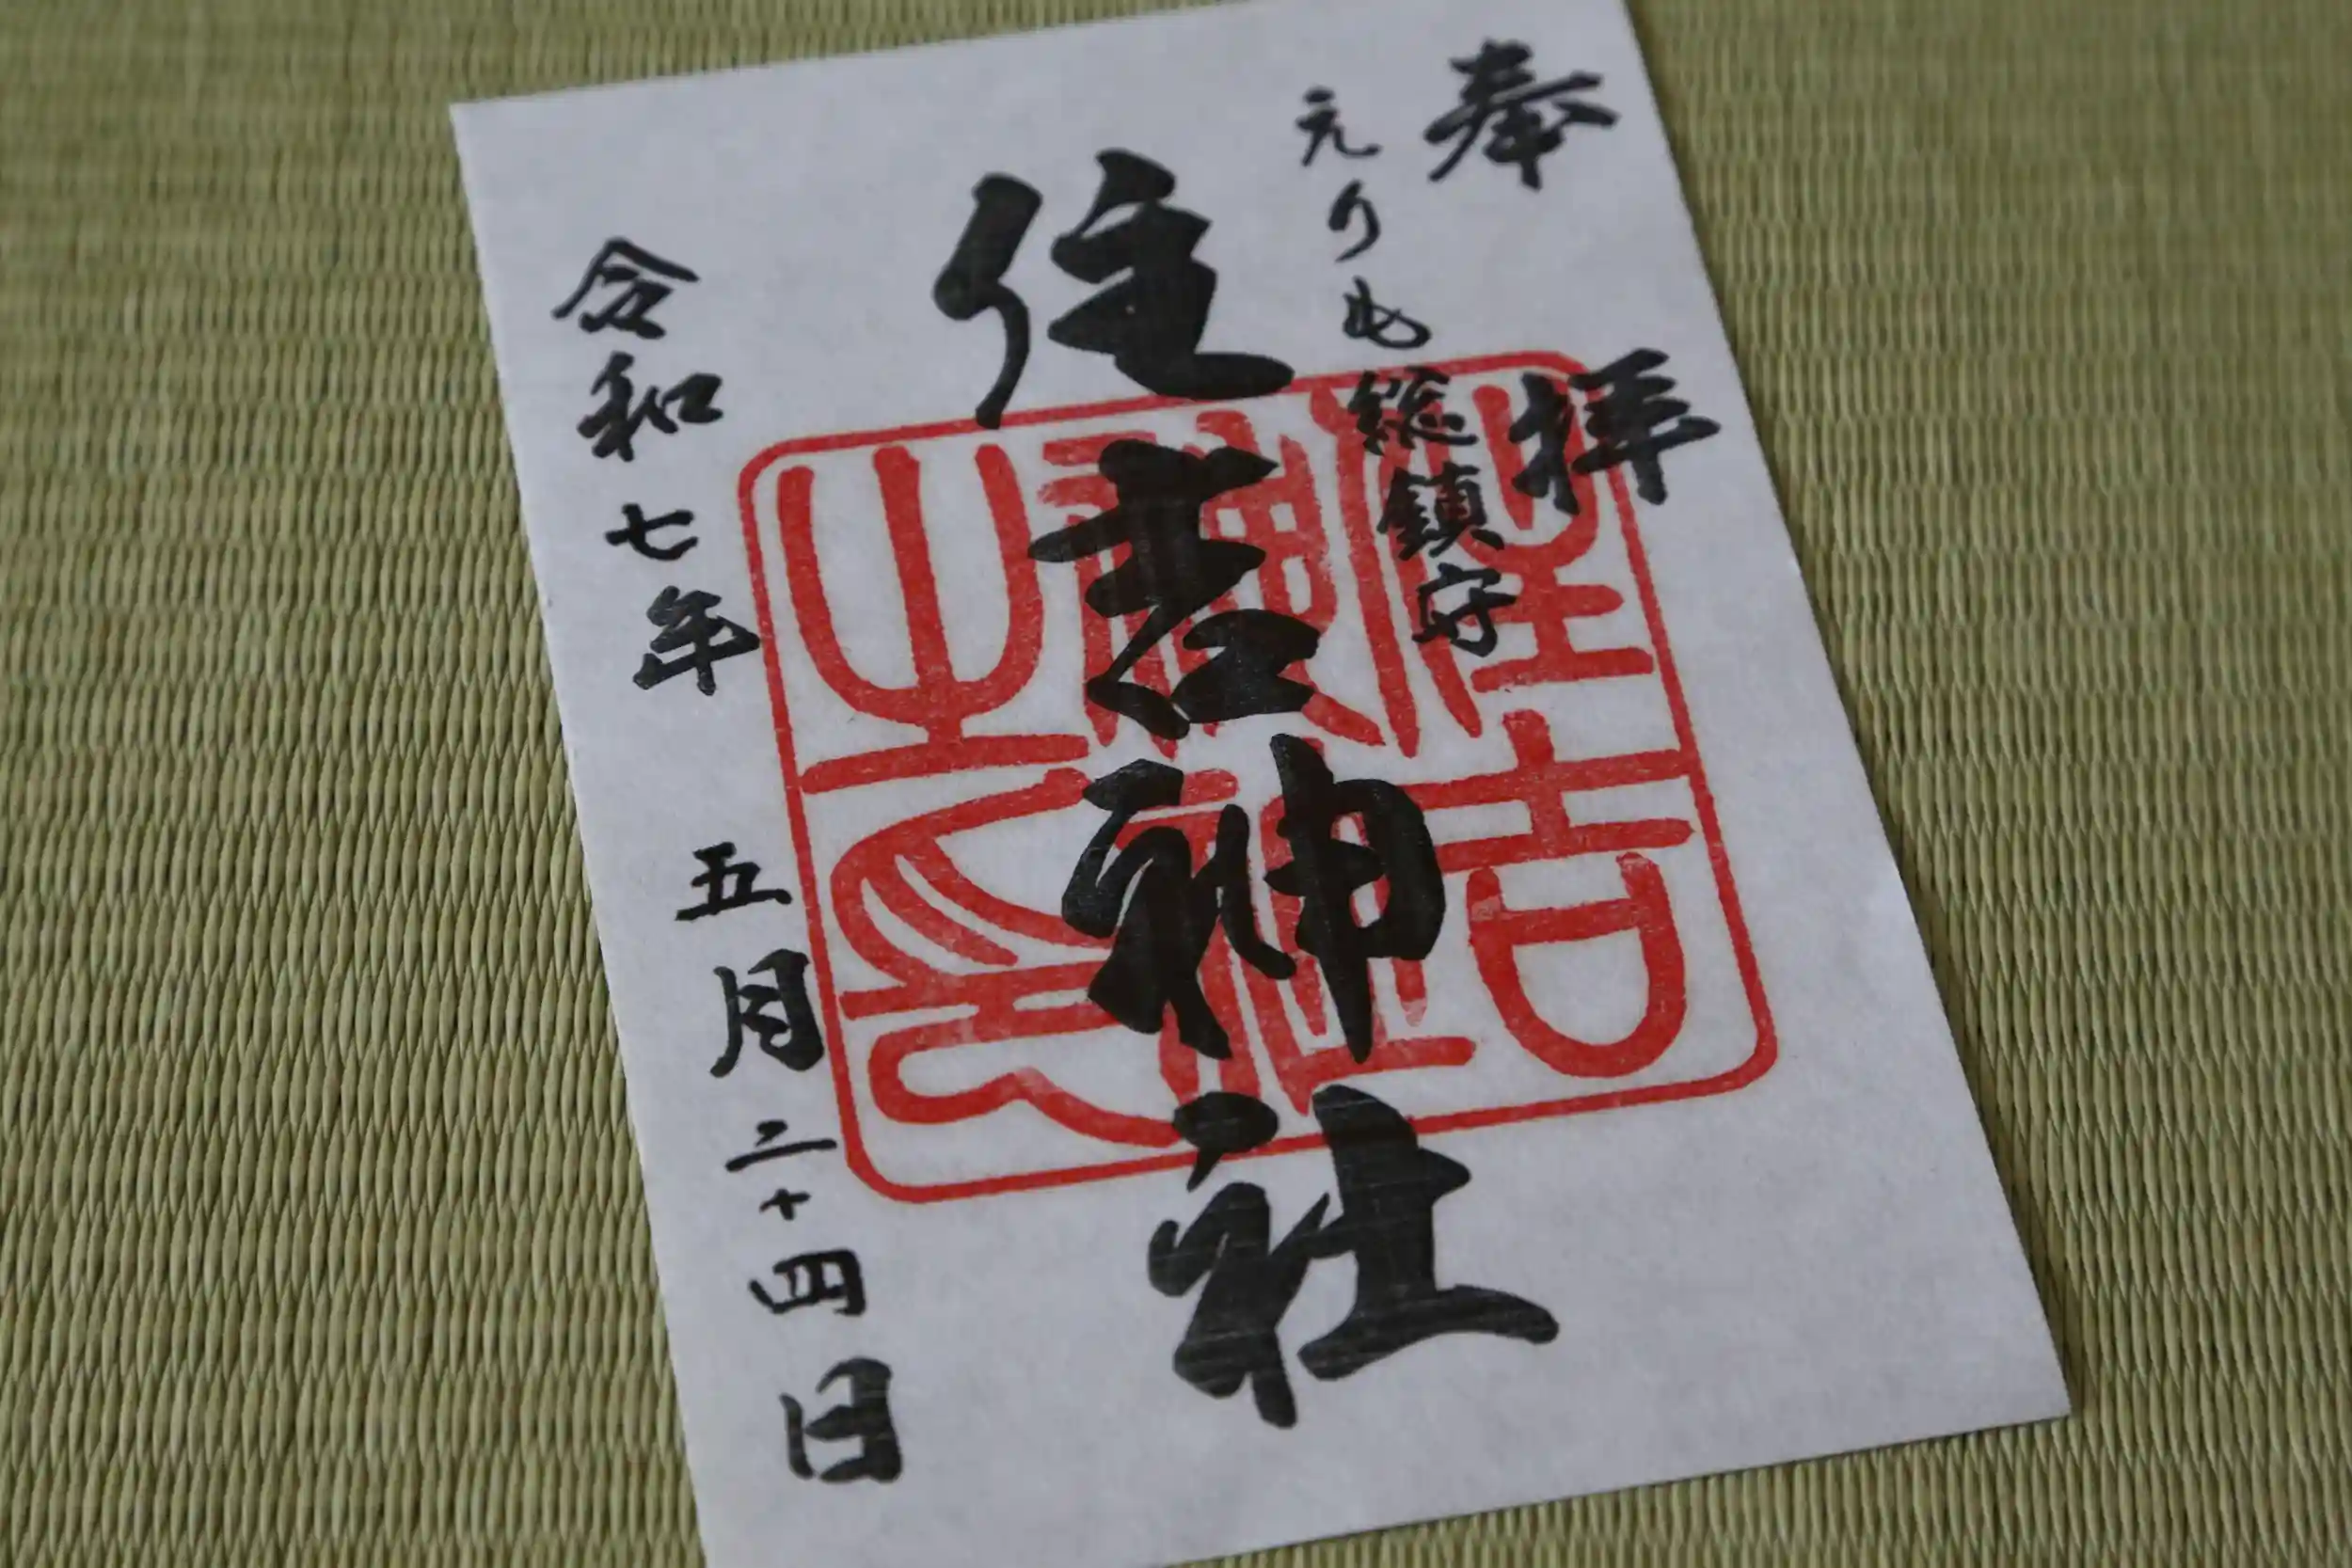 奉拝
えりも総鎮守
住吉神社
住吉神社之印
令和七年 五月二十四日